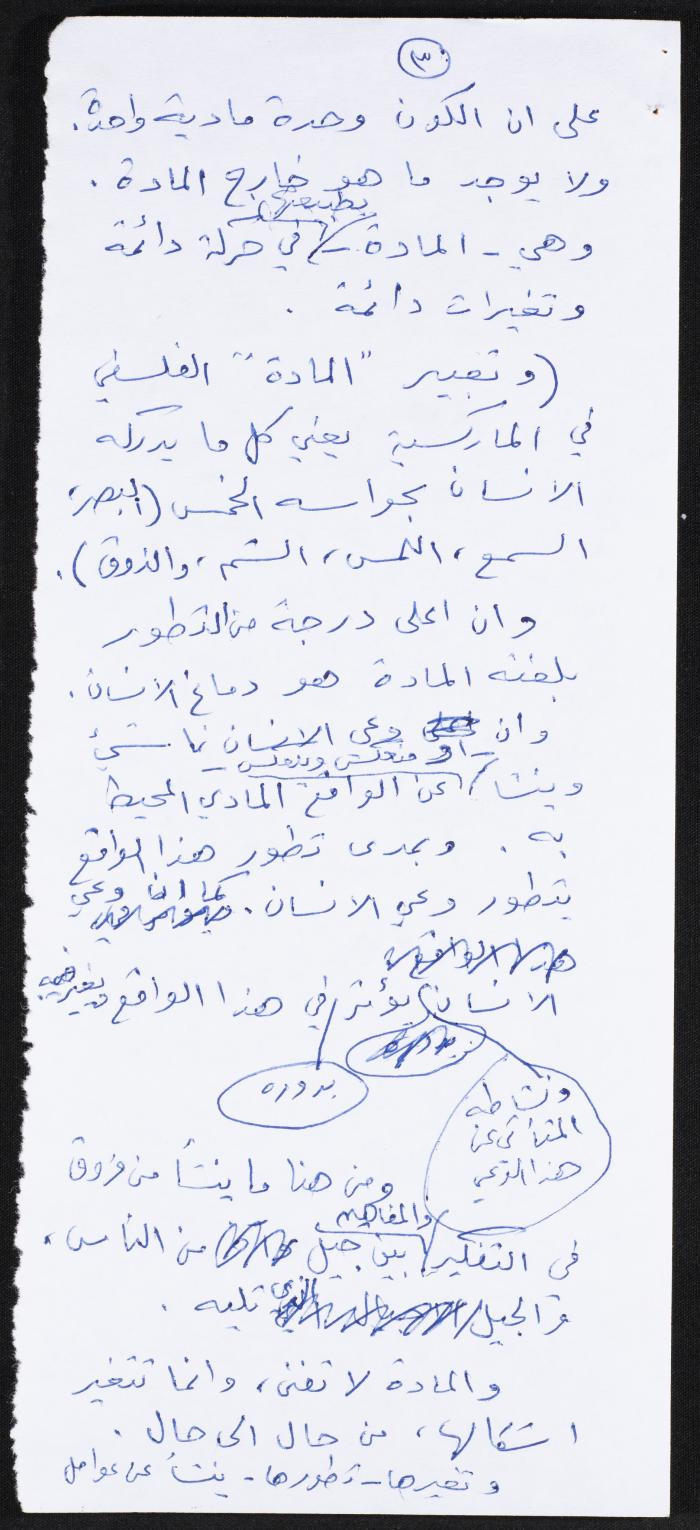 ٣
على ان الكون وحدة مادية واحدة.
ولا يوجد ما هو خارج المادة.
بطبيعتها
وهي - المادة - في حركة دائمة
وتغيرات دائمة.
(وتعبير "المادة" الفلسفي
في الماركسية يعني كل ما يدركه
الانسان بحواسه الخمس (البصر،
السمع، اللمس، الشم، والذوق).
وان اعلى درجة من التطور
بلغته المادة هو دماغ الانسان.
وان وعي الانسان ناشئ
- او منعكس وينعكس -
وينشأ عن الواقع المادي المحيط
به. وبمدى تطور هذا الواقع
يتطور وعي الانسان. كما ان وعي
الانسان يؤثر في هذا الواقع ويغير فيه
بدوره
ونشاطه
المتأتي عن
هذا الوعي
ومن هنا ما ينشأ من فروق
والمفاهيم
في التفكير بين جيل من الناس،
والجيل الذي تليه.
والمادة لا تفنى، وانما تتغير
اشكالها، من حال الى حال.
وتغيرها - تطورها - ينشأ عن عوامل